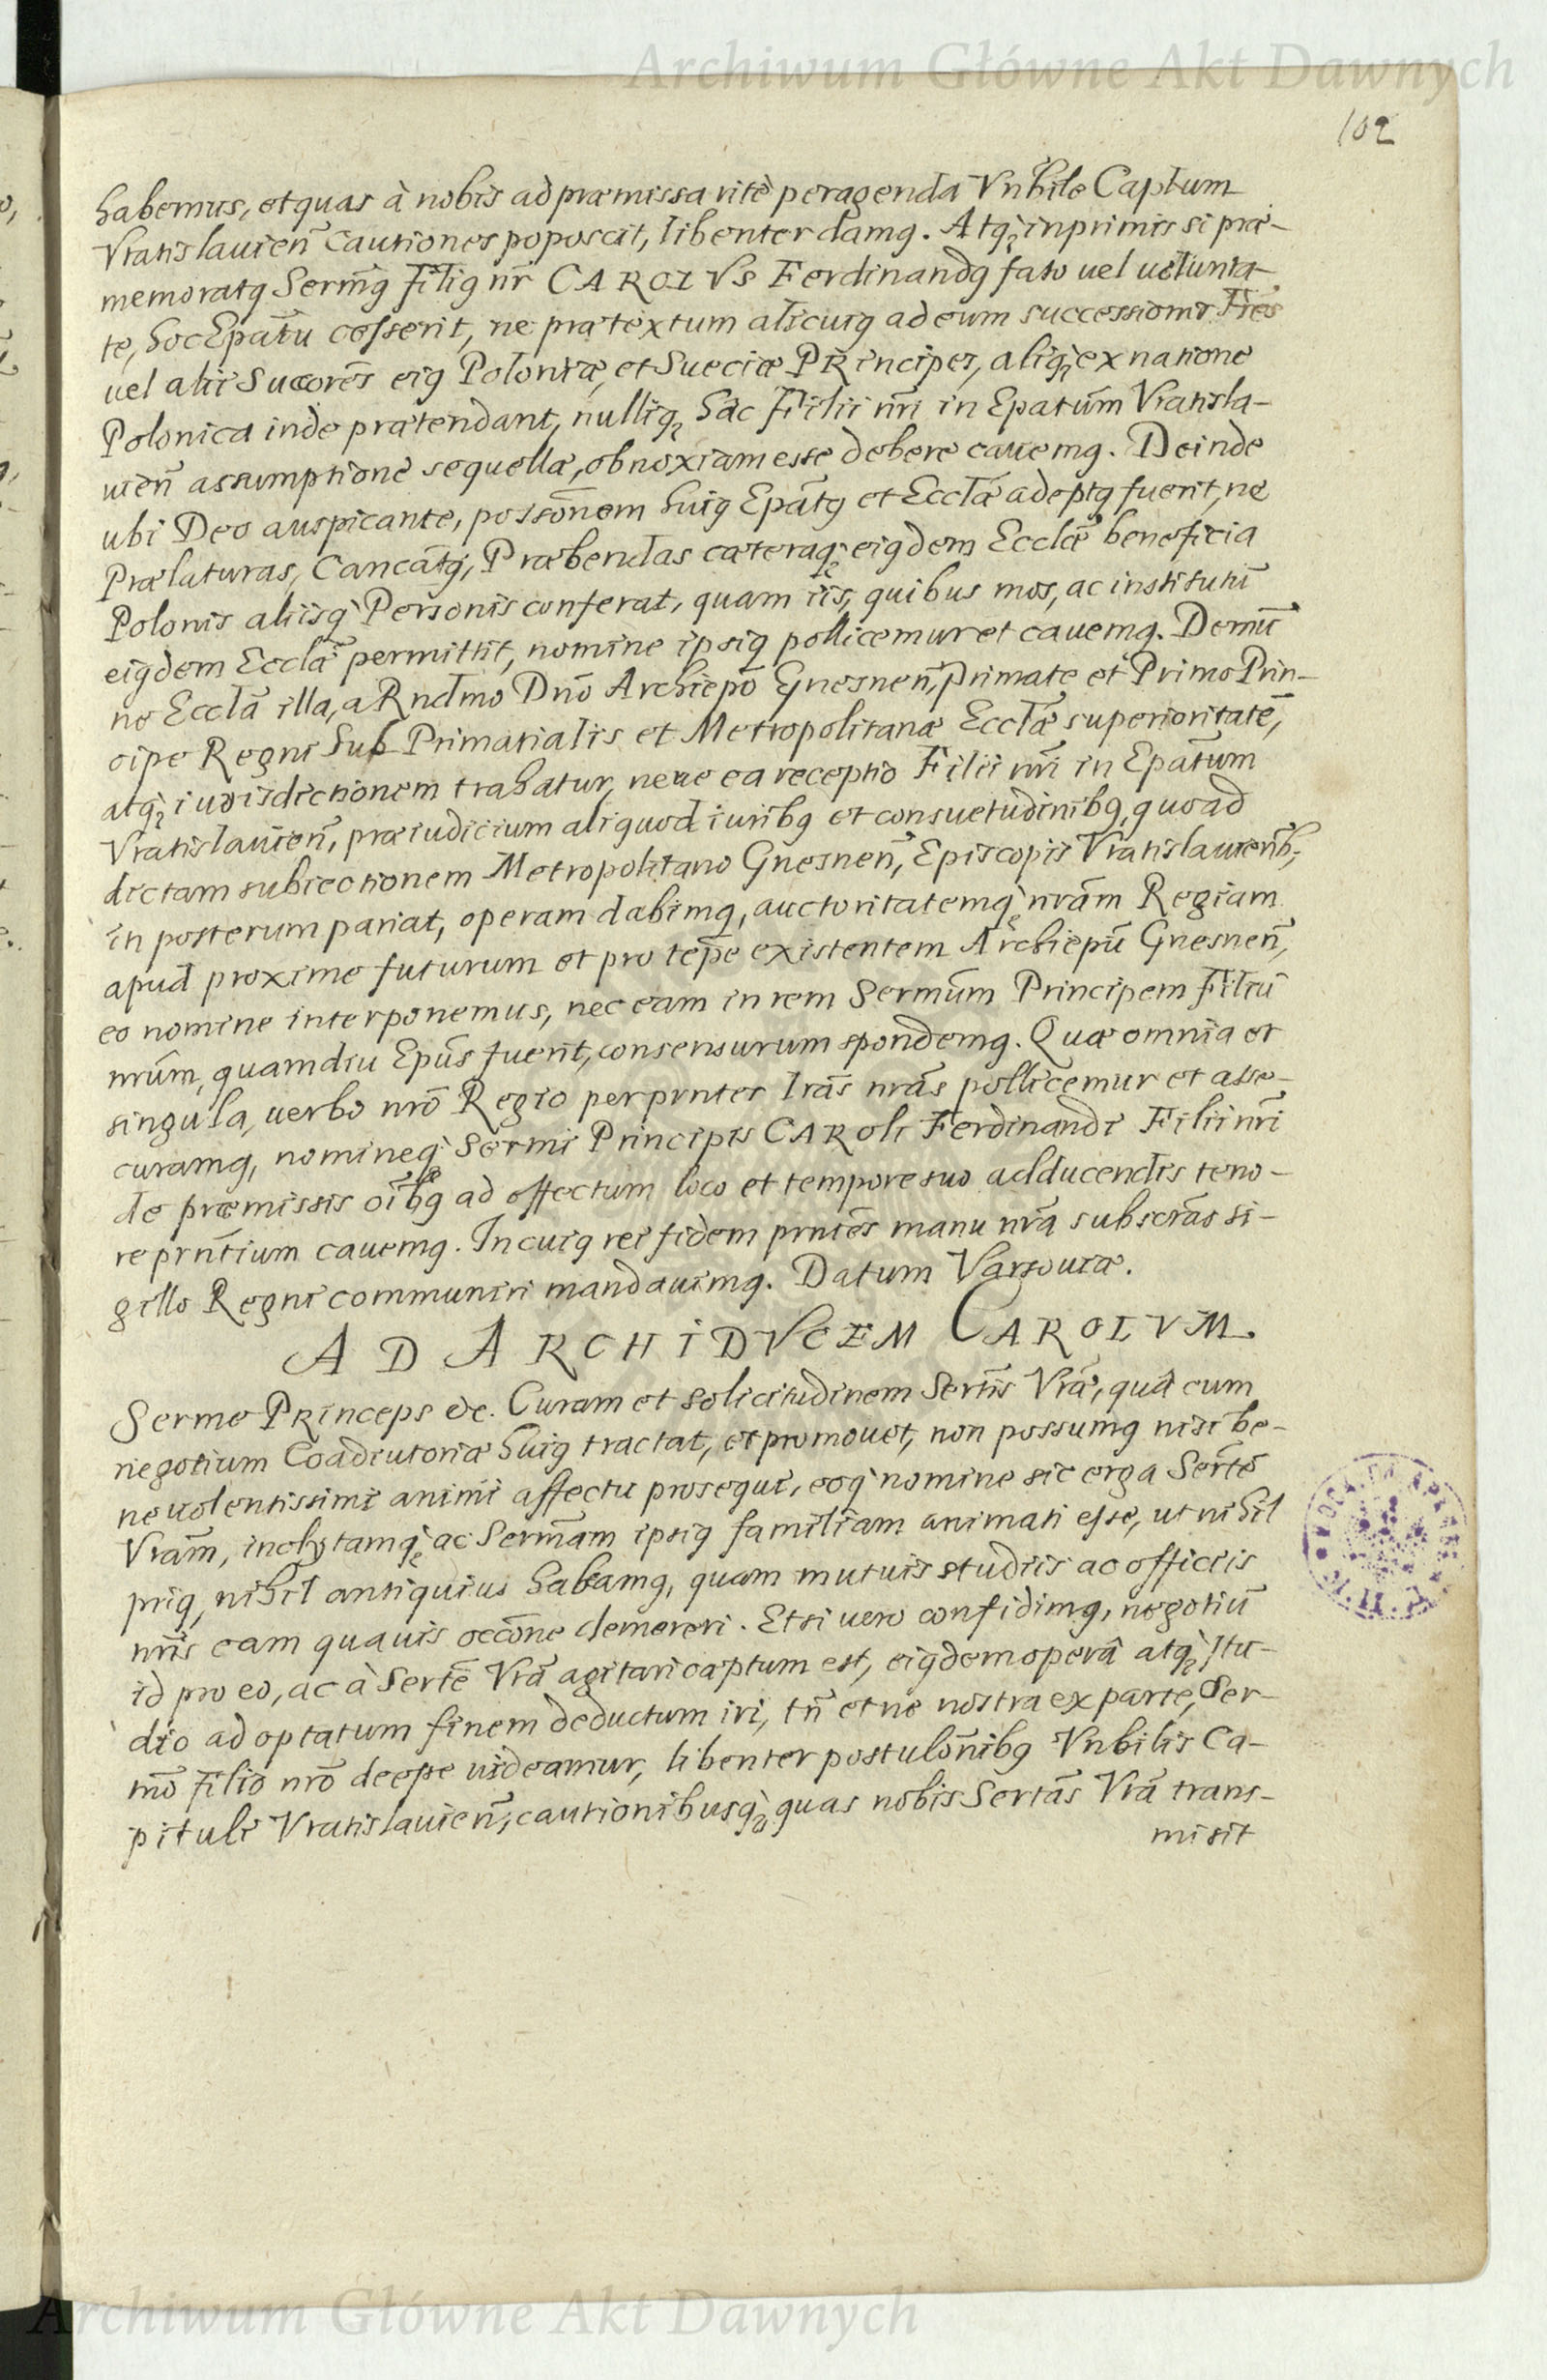 Archiwum Główne Akt Dawnych
102
habemus, et quas à nobis ad præmissa ritè peragenda Vnbile Captum
Vratislauien̄ cautiones poposcit, libenter damꝰ. Atq̀ȝ inprimis si præ-
memoratꝰ Serm̄ꝰ Filiꝰ nr̄ CAROLVS Ferdinandꝰ fato uel uolunta-
te, hoc Epātu cesserit, ne prætextum alicuiꝰ ad eum successionis Fr̄es
uel alii Succorēs eiꝰ Poloniæ, et Sueciæ PRincipes, aliiq̀ȝ ex natione
Polonica inde prætendant, nulliqȝ hāc Filii nr̄i in Epatūm Vratisla-
uien̄ assumptionē sequellæ, obnoxiam esse debere cauemꝰ. Deinde
ubi Deo auspicante, possōnem huiꝰ Epātꝰ et Ecclǣ adeptꝰ fuerit, ne
Prælaturas, Cancātꝰ, Præbendas cæteraq̀ȝ eiꝰdem Ecclǣ beneficia
Polonis aliisq̀ Personis conferat, quam iis, quibus mos, ac institutū
eiꝰdem Ecclǣ permittit, nomine ipsiꝰ pollicemur et cauemꝰ. Demū
ne Ecclā illa, a Rndmo Dnō Archiepō Gnesnen̄, Primate et Primo Prin-
cipe Regni sub Primatialis et Metropolitanæ Ecclǣ superioritatē,
atq̀ȝ iurisdictionem trahatur, neue ea receptio Filii nr̄i in Epātum
Vratislauien̄, præiudicium aliquod iuribꝰ et consuetudinibꝰ, quoad
dictam subiectionem Metropolitano Gnesnen̄, Episcopis Vratislauien̄b;
in posterum pariat, operam dabimꝰ, auctoritatemq̀ȝ nrām Regiam
apud proxime futurum et pro tep̄e existentem Archiepū Gnesnen̄,
eo nomine interponemus, nec eam in rem Sermūm Principem Filiū
nrūm, quamdiu Epūs fuerit, consensurum spondemꝰ. Quæ omnia et
singula, uerbo nrō Regio per prntes lrās nrās pollicemur et asse-
curamꝰ, nomineq̀ Sermi Principis CAROli Ferdinandi Filii nr̄i
de præmissis oībꝰ ad effectum loco et tempore suo adducendis teno-
re prntīum cauemꝰ. In cuiꝰ rei fidem prntēs manu nrā subscrās si-
gillo Regni communiri mandauimꝰ. Datum Varsouiæ.
AD ARCHIDVCEM CAROLVM.
Serme PRinceps etc. Curam et solicitudinem Sertīs Vrǣ, quâ cum
negotium Coadiutoriæ huiꝰ tractat, et promouet, non possumꝰ nisi be-
neuolentissimi animi affectu prosequi, eoq̀ nomine sic erga Sertē
Vrām, inclytamq̀ȝ ac Sermām ipsiꝰ familiam animati esse, ut nihil
priꝰ, nihil antiquius habeamꝰ, quam mutuis studiis ac officiis
nrīs eam quauis occōne demereri. Etsi uero confidimꝰ, negotiū
id pro eo, ac à Sertē Vrā agitari cæptum est, eiꝰdem operâ atq̀ȝ stu-
dio ad optatum finem deductum iri, tn̄ et ne nostra ex parte, Ser-
mō Filio nrō deesse uideamur, libenter postulōnibꝰ Vnbilis Ca-
pituli Vratislauien̄, cautionibusq̀ȝ, quas nobis Sertās Vrā trans-
misit
Archiwum Główne Akt Dawnych